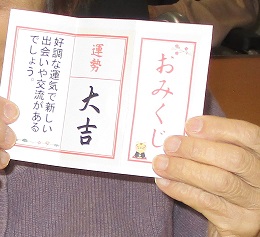 おみくじ
運勢
大吉
好調な運気で新しい
出会いや交流がある
でしょう。